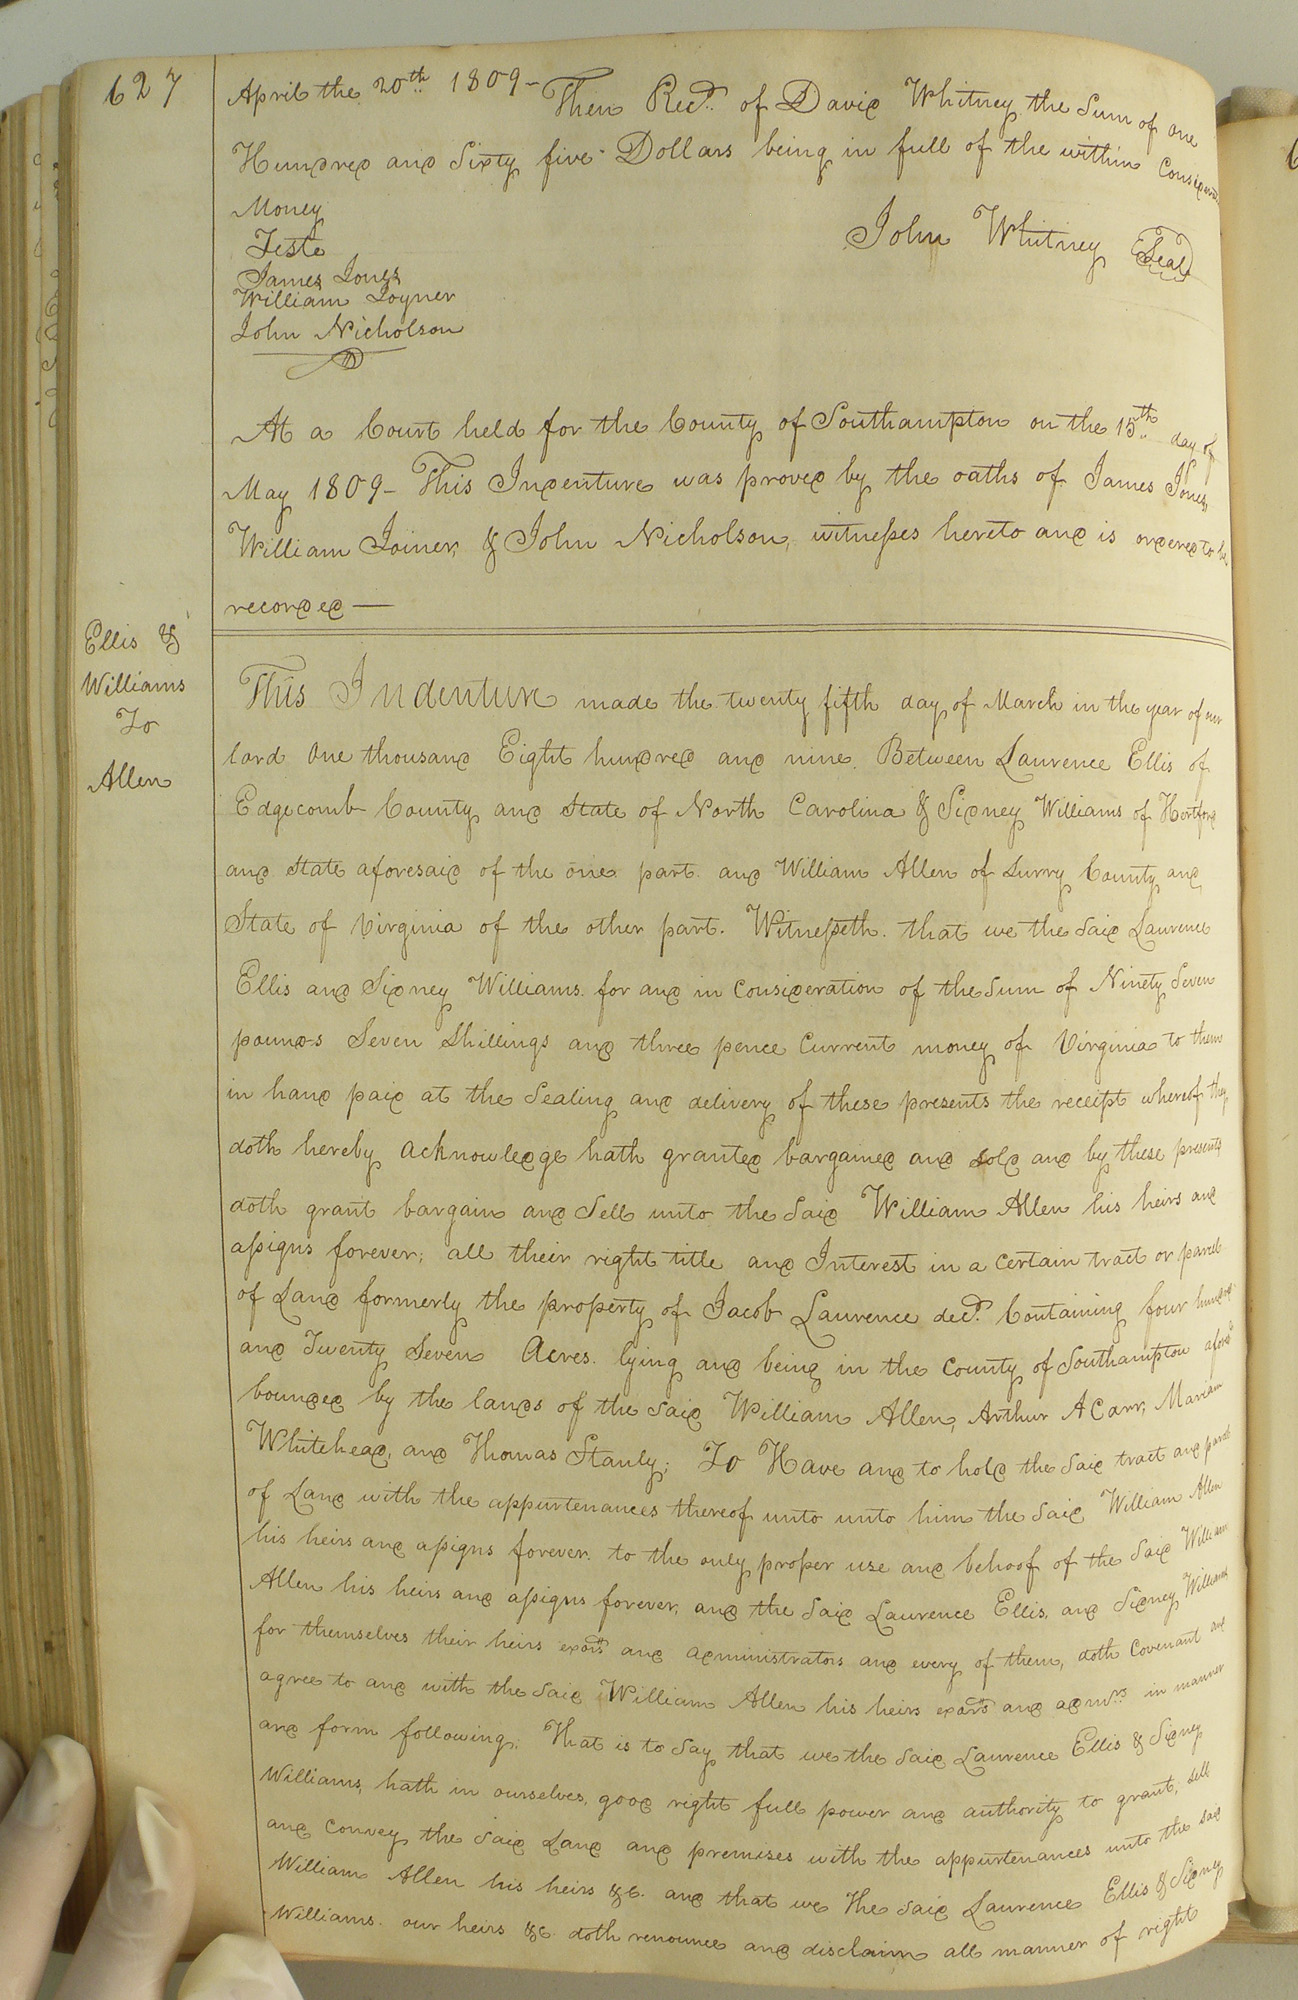 627
April the 20th 1809 - Then Recd. of David Whitney the Sum of one
Hundred and Sixty five Dollars being in full of the within
Money
John Whitney Seal
Teste
James Jones
William Joyner
John Nicholson
At a Court held for the County of Southampton on the 15th day of
May 1809 - This Indenture was proved by the oaths of James Jones,
William Joiner, & John Nicholson, witnesses hereto and is ordered to be
recorded —
Ellis &
Williams
To
Allen
This Indenture made the twenty fifth day of March in the year of our
lord One thousand Eight hundred and nine. Between Laurence Ellis of
Edgecomb County and State of North Carolina & Sidney Williams of Hertford
and State aforesaid of the one part and William Allen of Surry County and
State of Virginia of the other part. Witnesseth. that we the Said Laurence
Ellis and Sidney Williams for and in Consideration of the Sum of Ninety Seven
pounds Seven Shillings and three pence Current money of Virginia to them
in hand paid at the Sealing and delivery of these presents the receipt whereof they
doth hereby acknowledge hath granted bargained and Sold and by these presents
doth grant bargain and Sell unto the Said William Allen his heirs and
assigns forever; all their right title and Interest in a Certain tract or parcel
of Land formerly the property of Jacob Laurence decd. Containing four hundred
and Twenty Seven Acres. lying and being in the County of Southampton aforesd
bounded by the lands of the Said William Allen, Arthur A Carr, Mariam
Whitehead, and Thomas Stanly; To Have and to hold the Said tract and parcel
of Land with the appurtenances thereof unto unto him the Said William Allen
his heirs and assigns forever. to the only proper use and behoof of the Said William
Allen his heirs and assigns forever, and the Said Laurence Ellis, and Sidney Williams
for themselves their heirs exors and administrators and every of them, doth Covenant and
agree to and with the Said William Allen his heirs exors and admrs. in manner
and form following: That is to Say that we the Said Laurence Ellis & Sidney
Williams, hath in ourselves, good right full power and authority to grant, sell
and Convey the Said Land and premises with the appurtenances unto the said
William Allen his heirs &c. and that we the Said Laurence Ellis & Sidney
Williams. our heirs &c. doth renounce and disclaim all manner of right